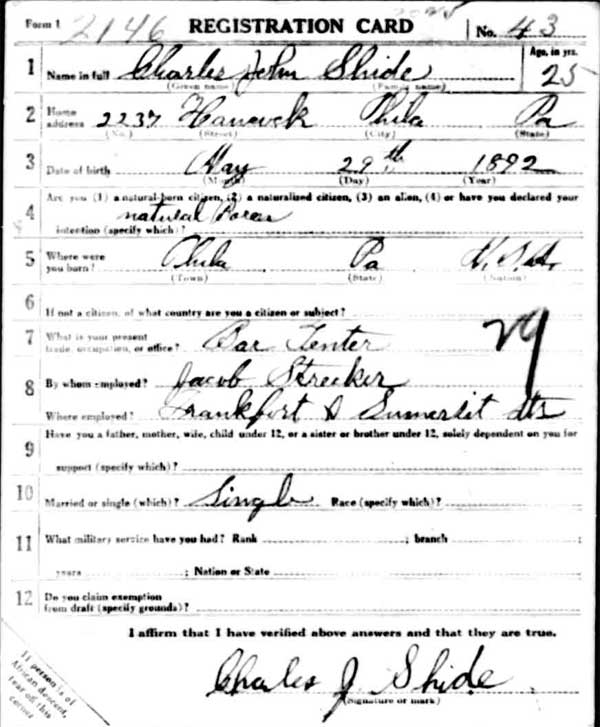 Form 1 2146 REGISTRATION CARD No. 43
1 Name in full Charles John Shide Age, in yrs. 25
(Given name) (Family name)
2 Home address 2237 Hancock Phila Pa
(No.) (Street) (City) (State)
3 Date of birth May 29th 1892
(Month) (Day) (Year)
4 Are you (1) a natural-born citizen, (2) a naturalized citizen, (3) an alien, (4) or have you declared your
intention (specify which)? natural
5 Where were you born? Phila Pa U.S.A.
(Town) (State) (Nation)
6 If not a citizen, of what country are you a citizen or subject?
7 What is your present trade, occupation, or office? Bar Tenter 29
8 By whom employed? Jacob Strecker
Where employed? Frankford &
9 Have you a father, mother, wife, child under 12, or a sister or brother under 12, solely dependent on you for
support (specify which)?
10 Married or single (which)? Single Race (specify which)?
11 What military service have you had? Rank ; branch ;
years ; Nation or State
12 Do you claim exemption
from draft (specify grounds)?
I affirm that I have verified above answers and that they are true.
Charles J Shide
(Signature or mark)
If person is of
African descent,
tear off this
corner